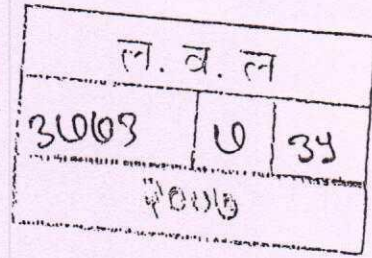 ल. व. ल
३७७३ ७ ३५
२००७